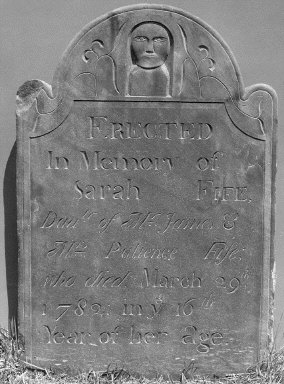 ERECTED
In Memory of
Sarah FIFE,
Daur. of Mr. James &
Mrs. Patience Fife;
who died March 29th
1782; in ye 16th
Year of her age.